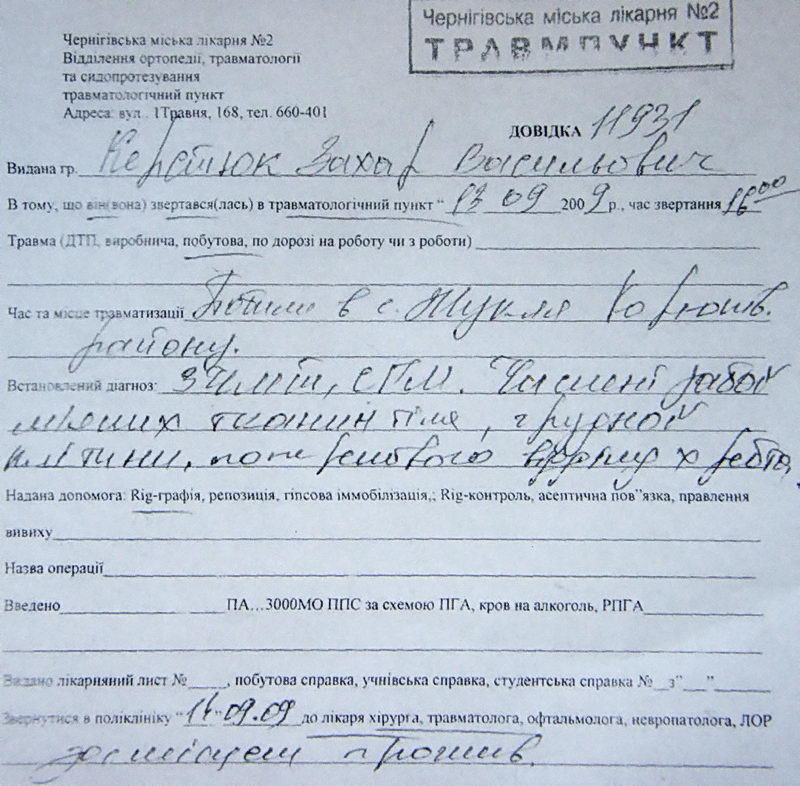 Чернігівська міська лікарня №2
ТРАВМПУНКТ
Чернігівська міська лікарня №2
Відділення ортопедії, травматології
та сидопротезування
травматологічний пункт
Адреса: вул . 1Травня, 168, тел. 660-401
ДОВІДКА 11931
Видана гр. Захар Васильович
В тому, що він(вона) звертався(лась) в травматологічний пункт " 13 09 2009 р., час звертання 16 00
Травма (ДТП, виробнича, побутова, по дорозі на роботу чи з роботи)
Час та місце травматизації в с. Жукля Корюків.
району.
Встановлений діагноз: ЗЧМТ, СГМ. Численні забої
мяких тканин тіла, грудної
клітини, поперекового відділу х ребта,
Надана допомога: Rig-графія, репозиція, гіпсова іммобілізація,; Rig-контроль, асептична пов"язка, правлення
вивиху
Назва операції
Введено ПА...3000МО ППС за схемою ПГА, кров на алкоголь, РПГА
Видано лікарняний лист № , побутова справка, учнівська справка, студентська справка № з" "
Звернутися в поліклініку "14" 09.09 до лікаря хірурга, травматолога, офтальмолога, невропатолога, ЛОР
за місцем прожив.